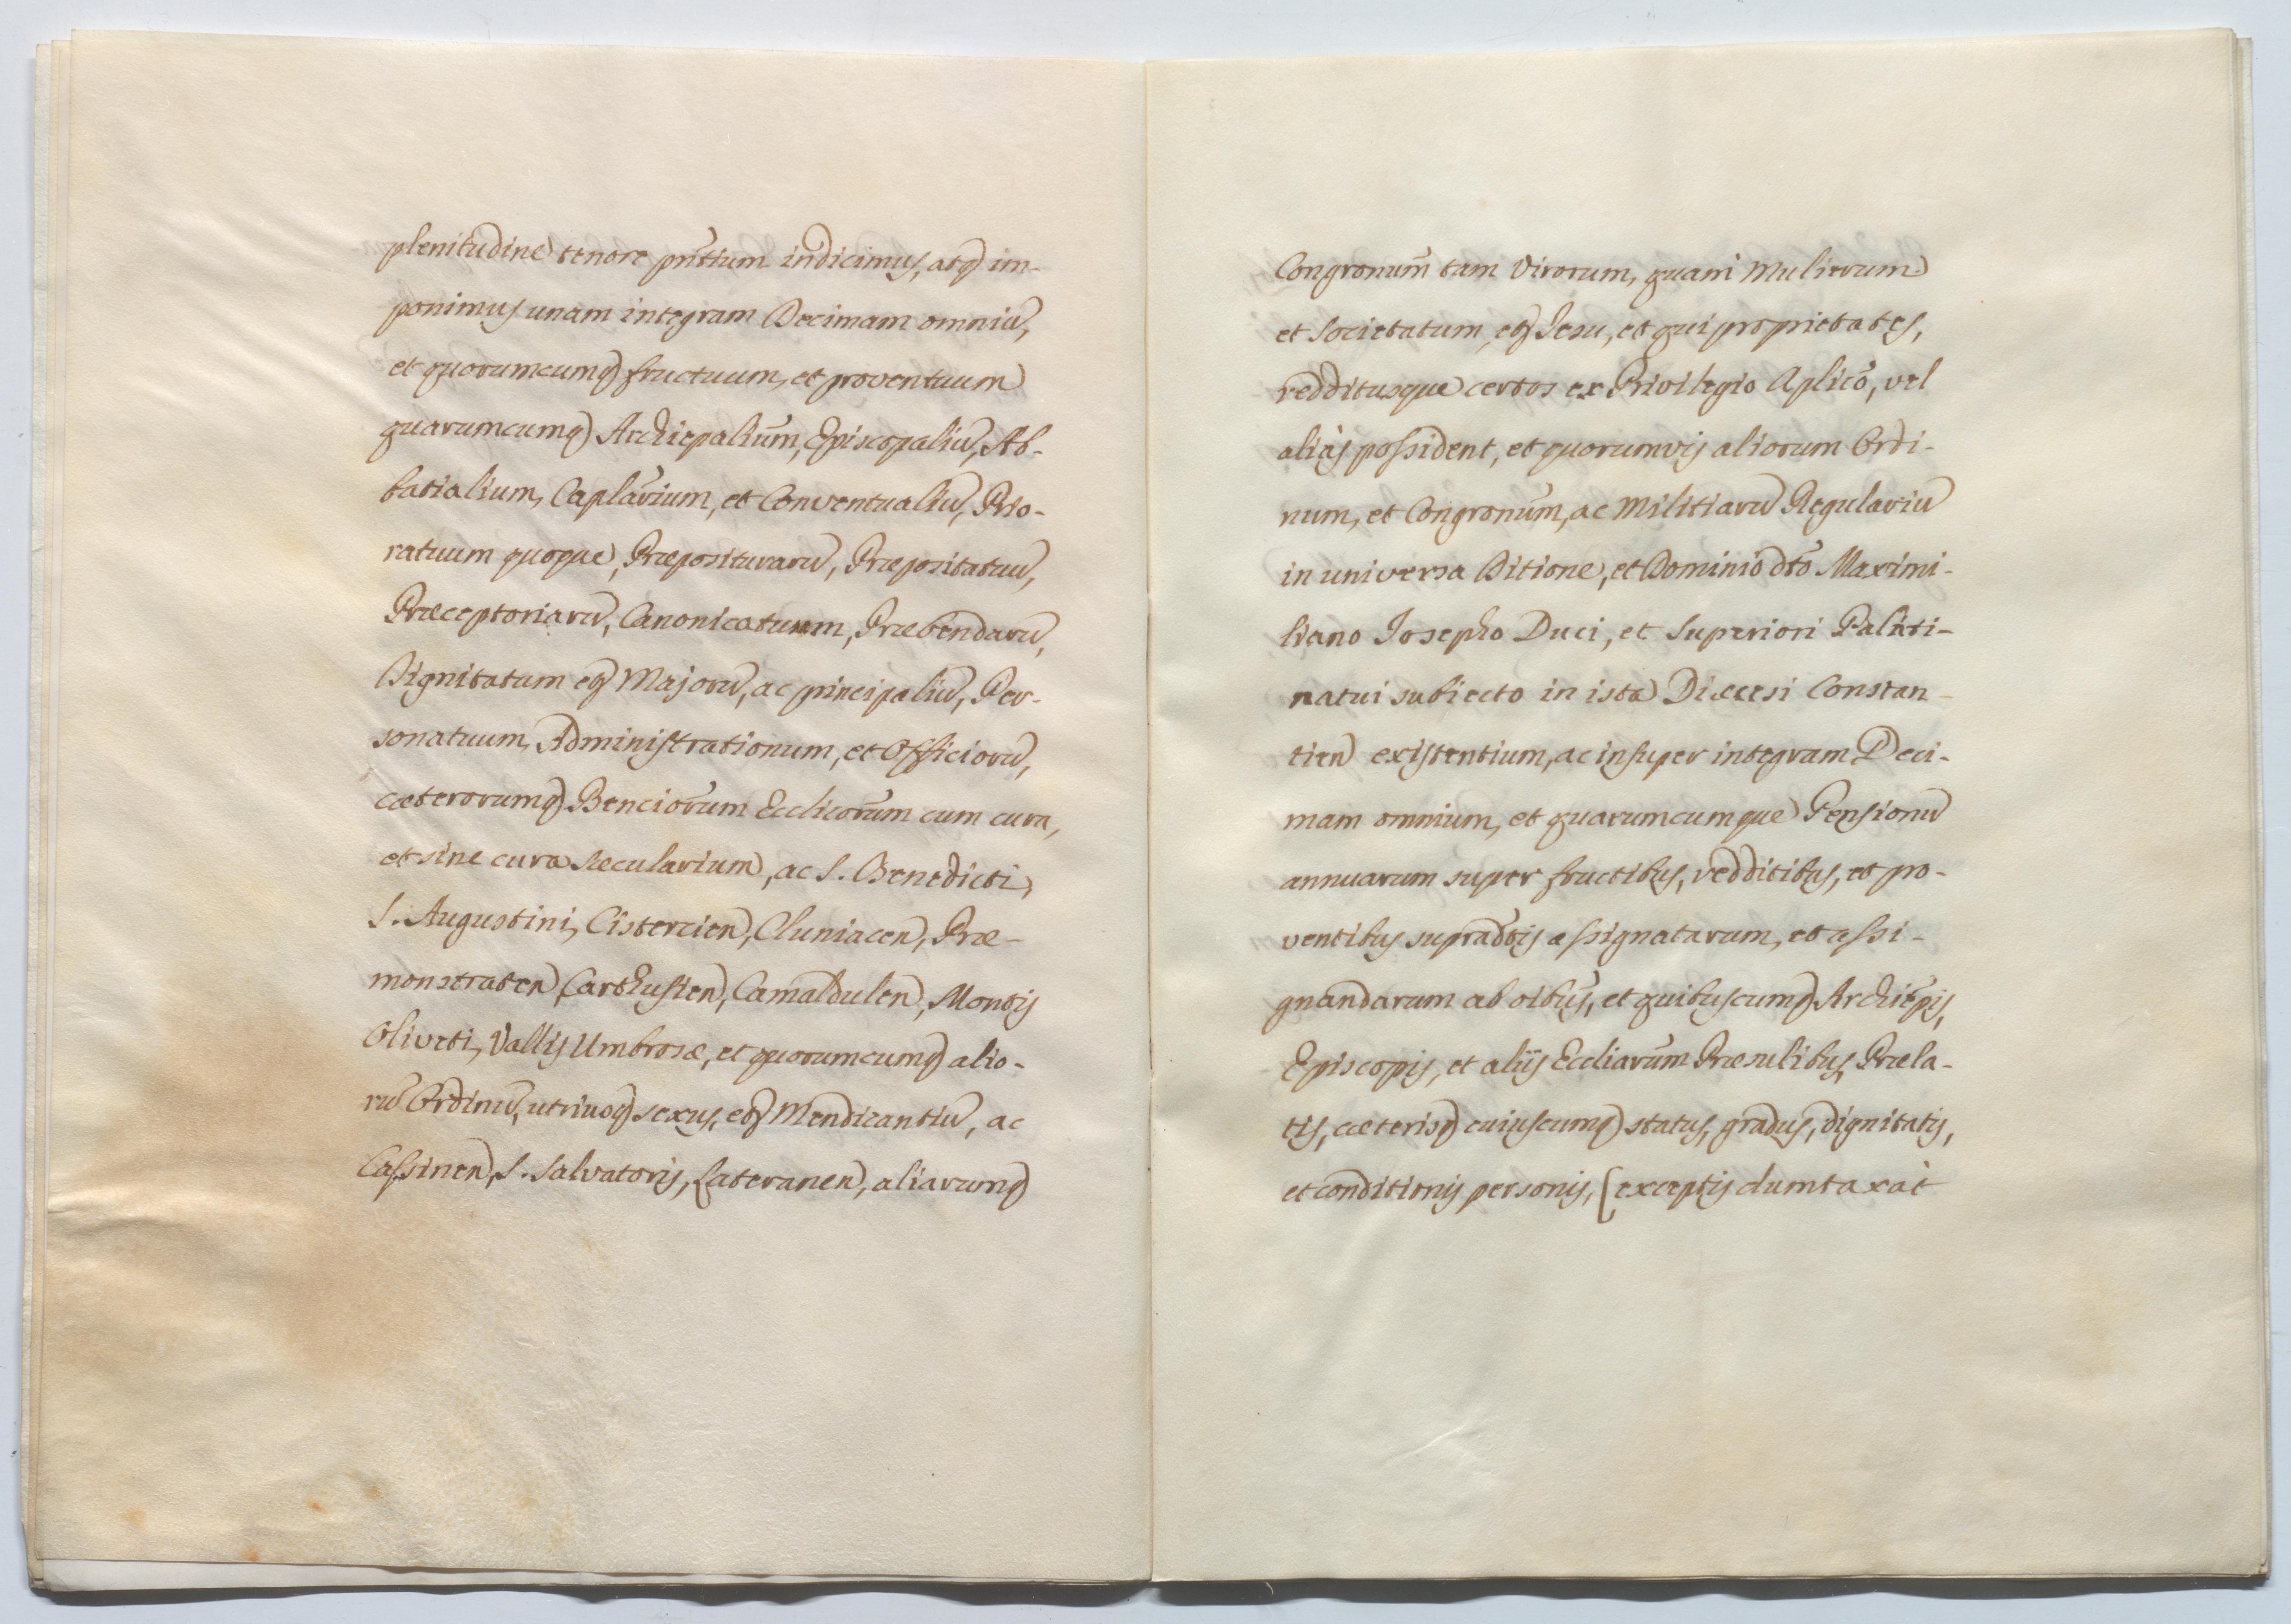 plenitudine tenore pñtium indicimus, atq im-
ponimus unam integram Decimam omniū,
et quorumcumq fructuum, et proventuum
quarumcumq Archiepalium, Episcopaliū, Ab-
batialium, Caplarium, et Conventualiū, Prio-
ratuum quoque, Præpositurarū, Præpositatuū,
Præceptoriarū, Canonicatuum, Præbendarū,
Dignitatum et Majorū, ac principaliū, Per-
sonatuum, Administrationum, et Officiorū,
cæterorumq Benciorum Ecclicorum cum cura,
et sine cura sæcularium, ac S. Benedicti,
S. Augustini, Cistercien, Cluniacen, Præ-
monstraten, Carthusien, Camaldulen, Montis
Oliveti, Vallis Umbrosæ, et quorumcumq alio-
rū Ordinū, utriusq sexus, et Mendicantiū, ac
Cassinen, S. Salvatoris, Lateranen, aliarumq
Congronum̄ tam Virorum, quam Mulierum
et Societatum, et Jesu, et qui proprietates,
redditusque certos ex Privilegio Aplico, vel
aliàs possident, et quorumvis aliorum Ordi-
num, et Congronum̄, ac Militiarū Regulariū
in universa Ditione, et Dominio dto Maximi-
liano Josepho Duci, et Superiori Palati-
natui subiecto in ista Diæcesi Constan-
tien existentium, ac insuper integram Deci-
mam omnium, et quarumcumque Pensionū
annuarum super fructibus, redditibus, et pro-
ventibus supradtis assignatarum, et assi-
gnandarum ab oibus, et quibuscumq Archiepis,
Episcopis, et aliis Eccliarum Præsulibus, Præla-
tis, cæterisq cuiuscumq status, gradus, dignitatis,
et conditionis personis, (exceptis dumtaxàt